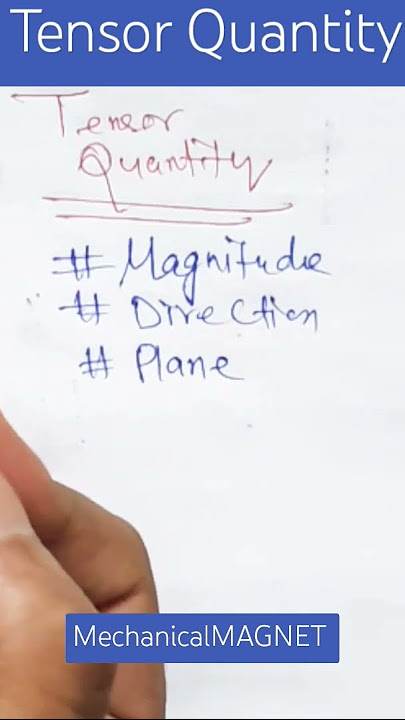 Tensor Quantity
Tensor
Quantity
# Magnitude
# Direction
# Plane
MechanicalMAGNET